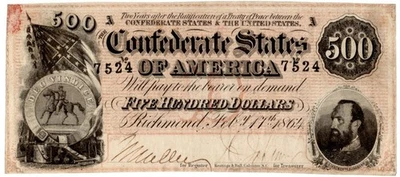 500 A Two Years after the Ratification of a Treaty of Peace between the A
CONFEDERATE STATES & THE UNITED STATES,
The Confederate States 500
7524 7524
OF AMERICA
Will pay to the bearer on demand
FIVE HUNDRED DOLLARS
Richmond, Feb. 17th 1864
for Register for Treasurer